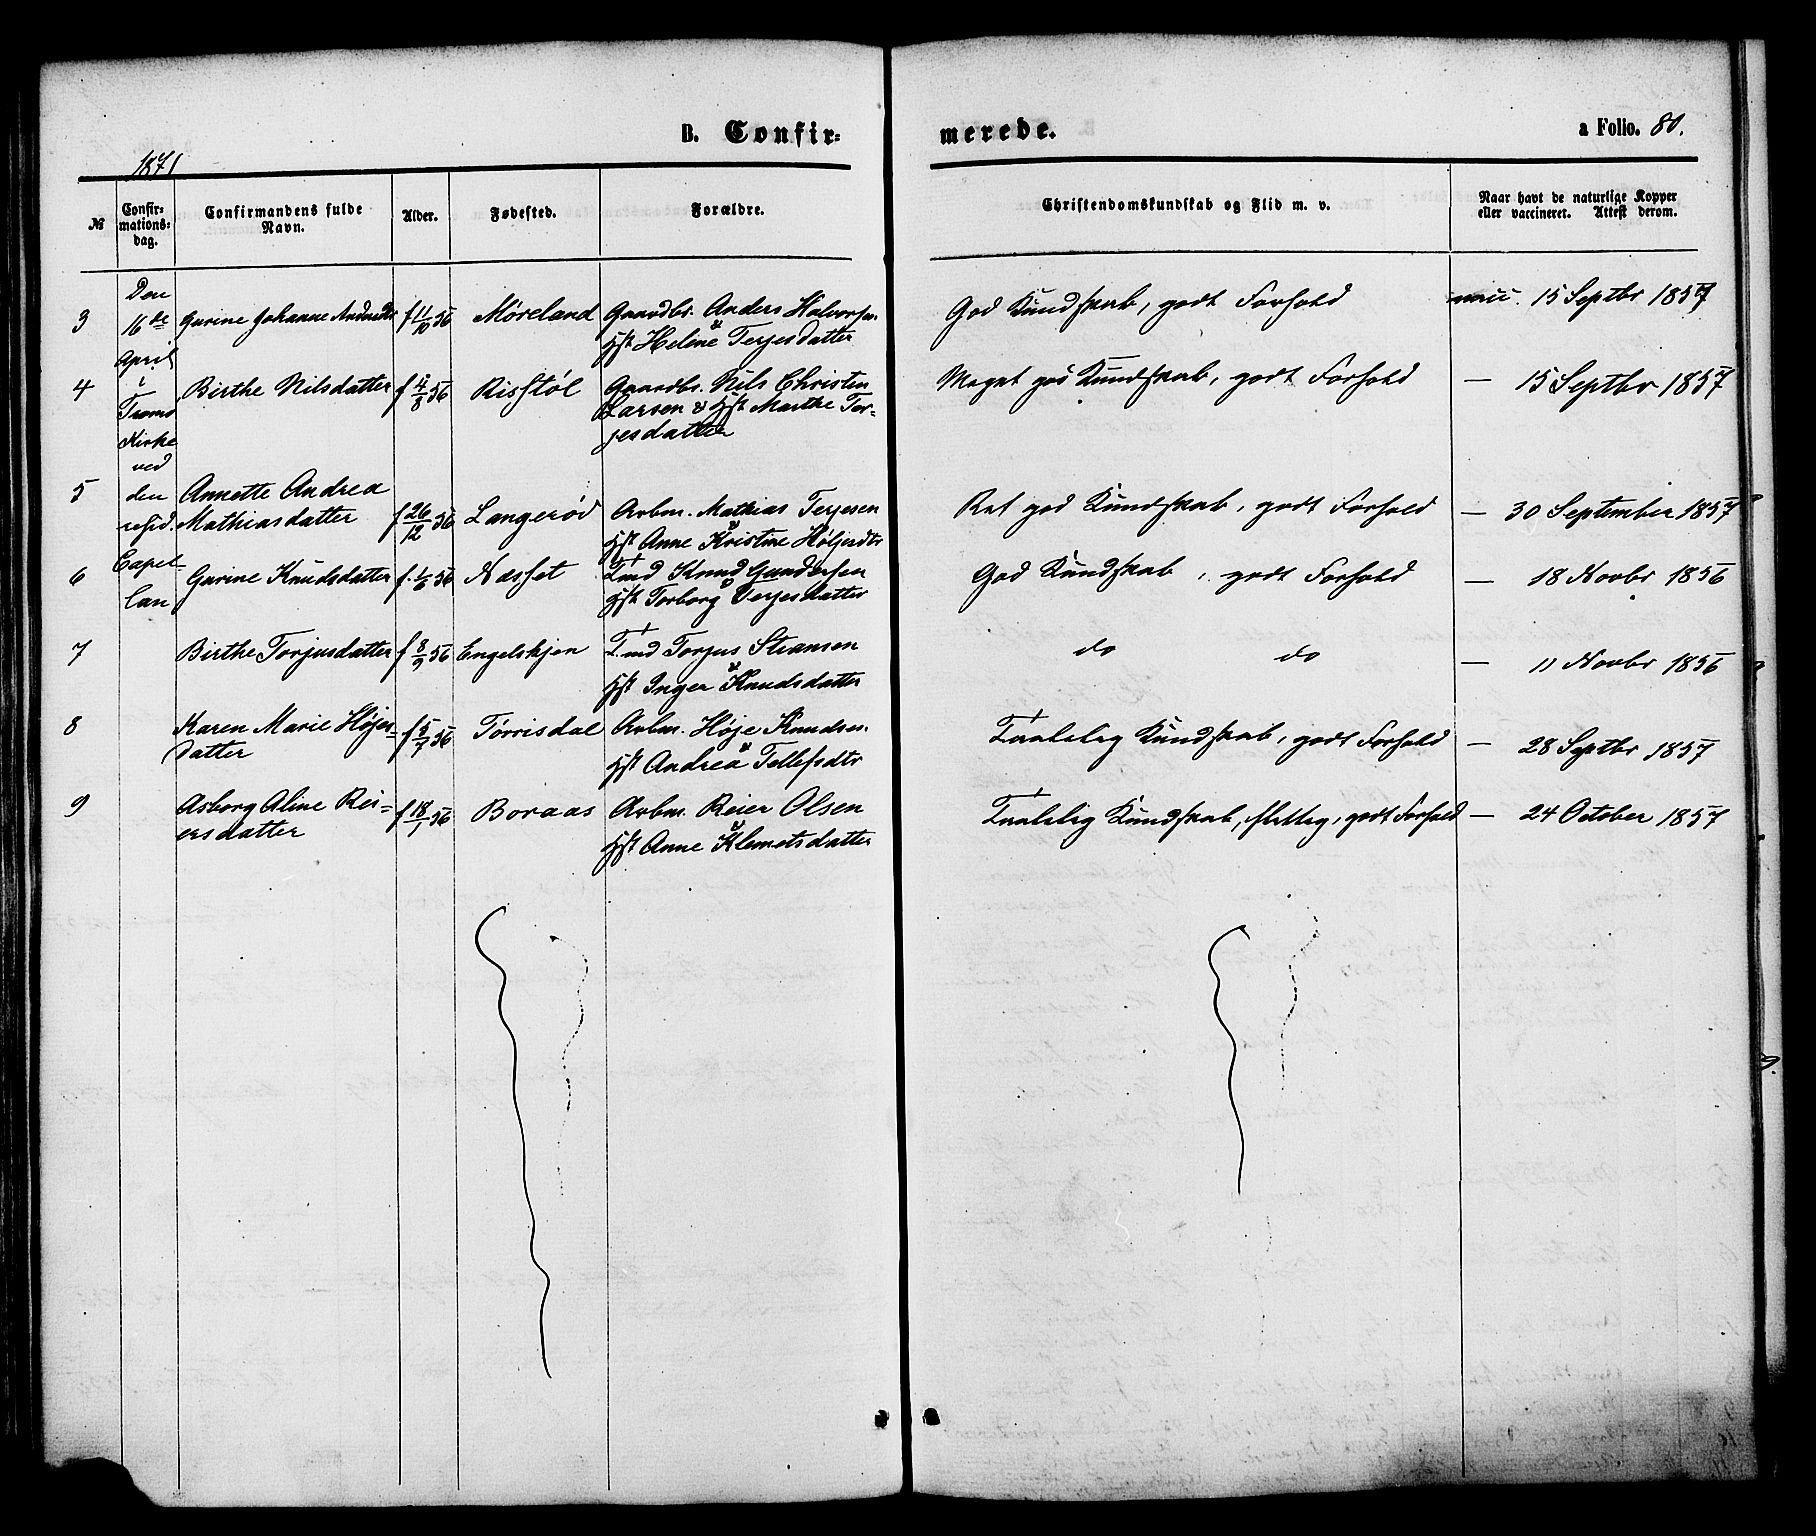 B. Confir-
merede.
a Folio. 80.
1871
№
Confir-
mations-
dag.
Confirmandens fulde
Navn.
Alder.
Fødested.
Forældre.
Christendomskundskab og Flid m. v.
Naar havt de naturlige Kopper
eller vaccineret. Attest derom.
Den
16de
April
i
Tromø
Kirke
ved
den
resid.
Capel-
lan
3 Gurine Johanne Andersdtr f 11/10 56 Møreland Gaardbr. Anders Halvorsen
& Hst Helene Terjesdatter
God Kundskab, godt Forhold vacc. 15 Septbr 1857
4 Birthe Nilsdatter f 4/8 56 Risstøl Gaardbr. Nils Christen
Larsen & Hst Marthe Ter-
jesdatter
Meget god Kundskab, godt Forhold — 15 Septbr 1857
5 Annette Andrea
Mathiasdatter f 26/12 56 Langerød Arbm. Mathias Terjesen
& Hst Anne Kristine Holjesdtr
Ret god Kundskab, godt Forhold — 30 September 1857
6 Gurine Knudsdatter f. 1/6 56 Næsset Tmd Knud Gundersen
& Hst Torborg Terjesdatter
God Kundskab, godt Forhold — 18 Novbr 1856
7 Birthe Torjusdatter f 8/9 56 Engelskjen Tmd Torjus Steansen
& Hst Inger Knudsdatter
do do — 11 Novbr 1856
8 Karen Marie Højes-
datter f 5/7 56 Torrisdal Arbm. Høje Knudsen.
& Hst Andrea Tellefsdtr
Taalelig Kundskab, godt Forhold — 28 Septbr 1857
9 Asborg Aline Rei-
ersdatter f 18/1 56 Boraas Arbm. Reier Olsen
& Hst Anne Klemetsdatter
Taalelig Kundskab, flittig, godt Forhold — 24 October 1857